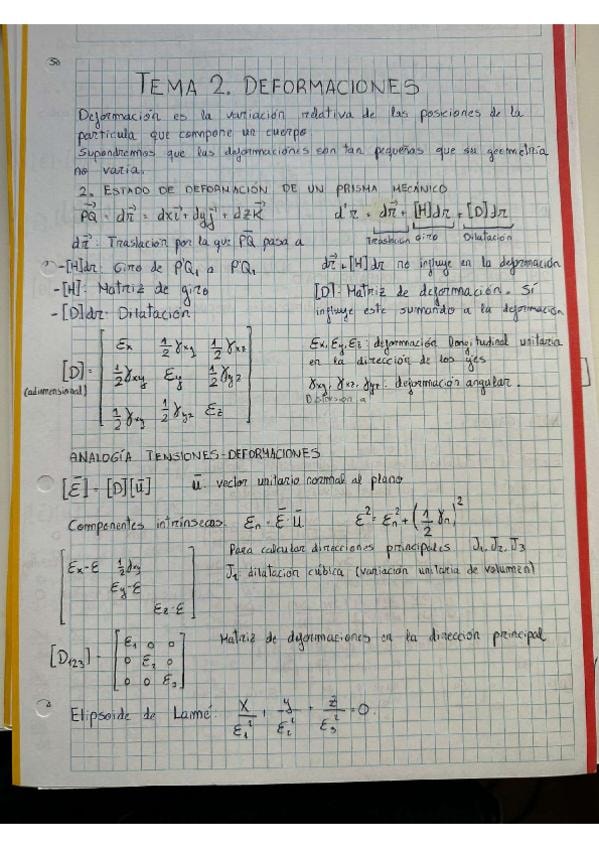 TEMA 2. DEFORMACIONES
Deformación es la variación relativa de las posiciones de la
partícula que compone un cuerpo
Supondremos que las deformaciones son tan pequeñas que su geometría
no varía.
2. ESTADO DE DEFORMACIÓN DE UN PRISMA MECÁNICO
PQ = dr = dxi + dyj + dzK d'r = dr + [H]dr + [D]dr
Traslación Giro Dilatación
dr: Traslación por la que PQ pasa a
-[H]dr: Giro de P'Q₁ a P'Q₂ dr + [H]dr no influye en la deformación
-[H]: Matriz de giro [D]: Matriz de deformación. Sí
-[D]dr: Dilatación influye este sumando a la deformación
[D] = [Ex 1/2 γxy 1/2 γxz Ex, Ey, Ez: deformación longitudinal unitaria
(adimensional) 1/2 γxy Ey 1/2 γyz en la dirección de los ejes
1/2 γxy 1/2 γyz Ez] γxy, γxz, γyz: deformación angular.
ANALOGÍA TENSIONES-DEFORMACIONES
[E] = [D][u] u: vector unitario normal al plano
Componentes intrínsecas: En = E · u E² = En² + (1/2 γn)²
[Ex-E 1/2 γxy Para calcular direcciones principales J₁, J₂, J₃
Ey-E J₁ dilatación cúbica (variación unitaria de volumen)
Ez-E]
[D₁₂₃] = [E₁ 0 0 Matriz de deformaciones en la dirección principal
0 E₂ 0
0 0 E₃]
Elipsoide de Lamé: X/E₁² + y/E₂² + z/E₃² = 0.